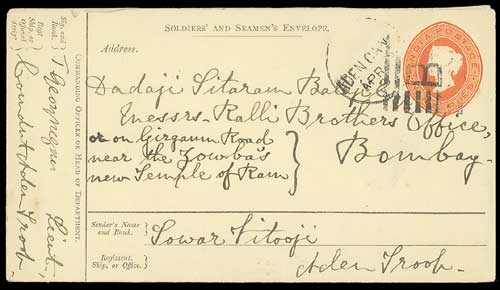 SOLDIERS' AND SEAMEN'S ENVELOPE.
Address.
INDIA POSTAGE
ADEN CAN
APR
B
Dadaji Sitaram
Messrs. Ralli Brothers Office,
or on Girgaum Road
near the Zowbas
new Temple of Ram
Bombay.
Sender's Name and Rank.
Sowar Sitooji
Regiment, Ship, or Office.
Aden Troop.
COMMANDING OFFICER OR HEAD OF DEPARTMENT.
Sig. and Rank.
Lieut.
Regt. Ship, or Office
Comdr Aden Troop